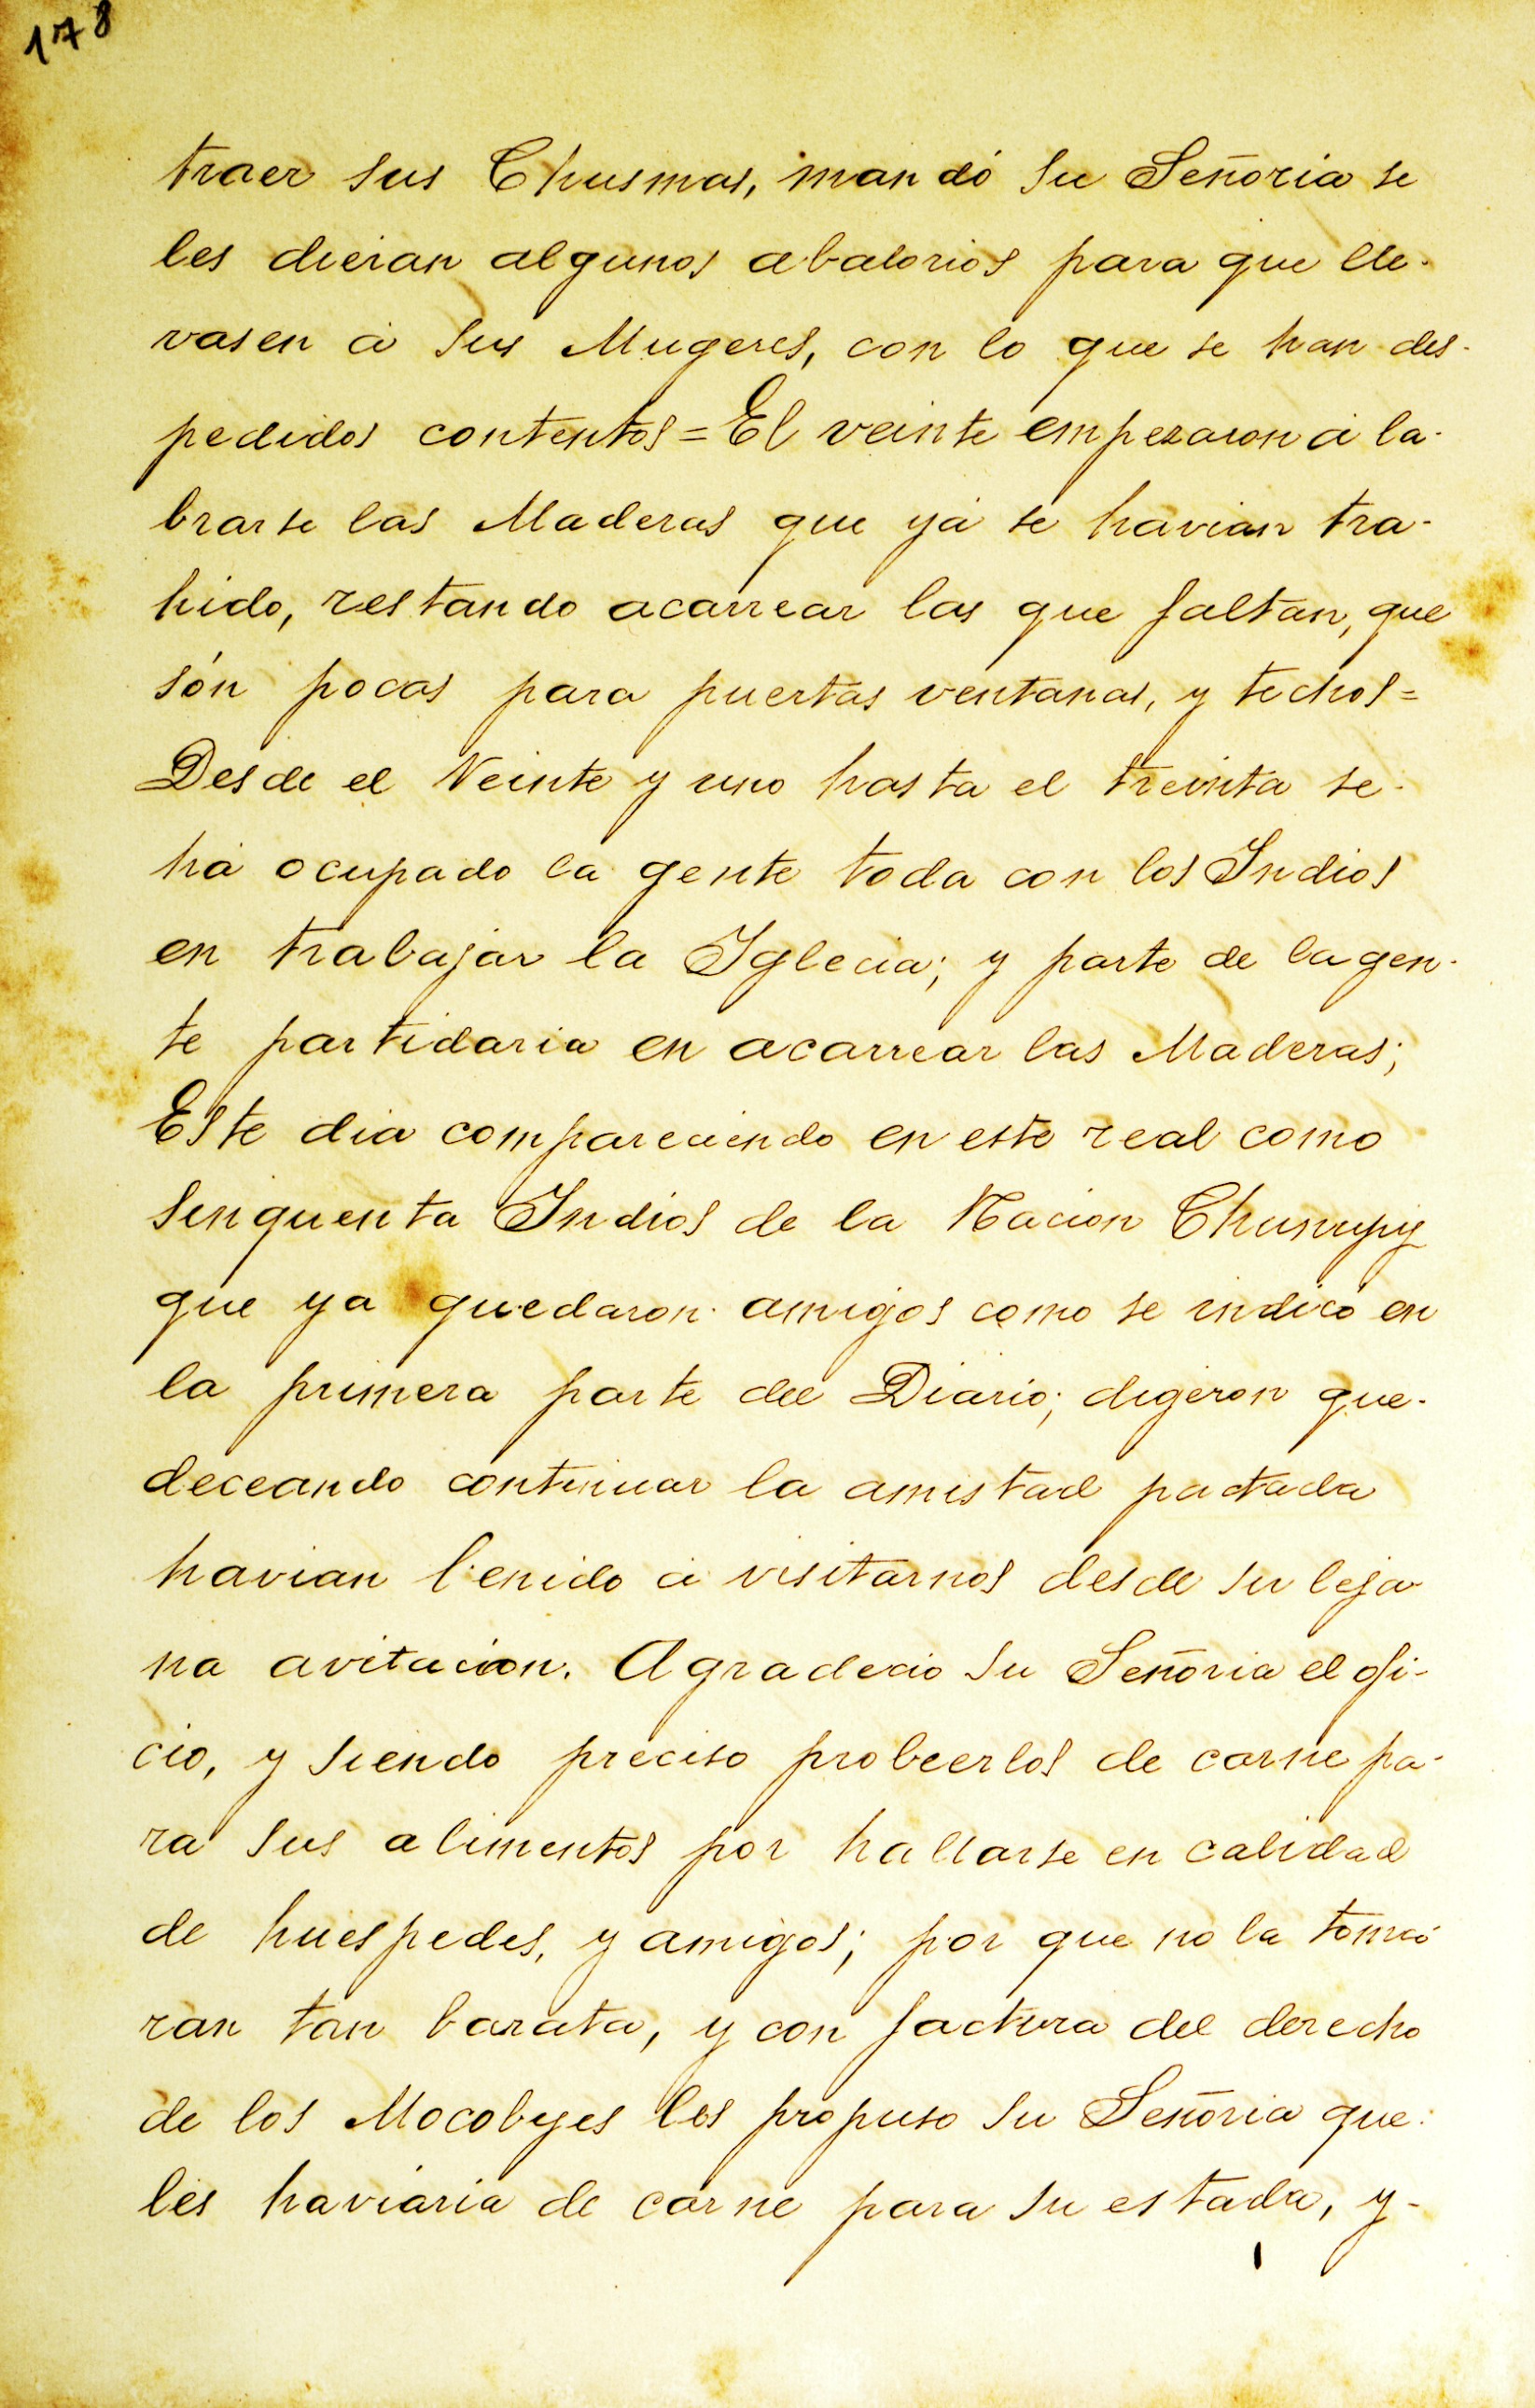 178
traer sus Chusmas, mandó su Señoria se
les dieran algunos abalorios para que lle-
vasen á sus Mugeres, con lo que se han des-
pedidos contentos = El veinte empezaron á la-
brarse las Maderas que yá se havian tra-
hido, restando acarrear las que faltan, que
són pocas para puertas ventanas, y techos =
Desde el Veinte y uno hasta el treinta se-
há ocupado la gente toda con los Indios
en trabajar la Iglecia; y parte de la gen-
te partidaria en acarrear las Maderas;
Este dia compareciendo en este real como
sinquenta Indios de la Nacion Chunupy
que ya quedaron amigos como se indicó en
la primera parte del Diario; digeron que-
deceando continuar la amistad pactada
havian benido á visitarnos desde su leja-
na avitacion. Agradecio su Señoria el ofi-
cio, y siendo preciso probeerlos de carne pa-
ra sus alimentos por hallarse en calidad
de huespedes, y amigos; por que no la tomá
ran tan barata, y con factura del derecho
de los Mocobyes les propuso su Señoria que-
les haviaria de carne para su estada, y-